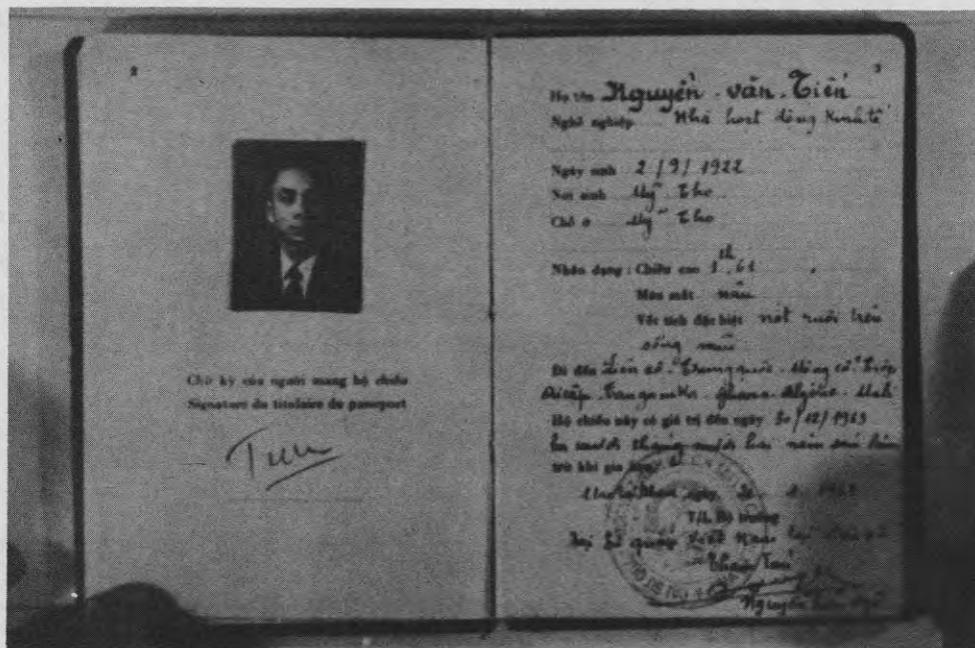 2
Chữ ký của người mang hộ chiếu
Signature du titulaire du passeport
3
Họ tên Nguyễn văn Tiến
Nghề nghiệp Nhà hoạt động Kinh tế
Ngày sinh 2/9/1922
Nơi sinh Mỹ Tho
Chỗ ở Mỹ Tho
Nhân dạng : Chiều cao 1th,61
Màu mắt nâu
Vết tích đặc biệt nốt ruồi trên
sống mũi
Đi đến Liên cô Trung quốc Mông cổ Tiệp
Ai cập Ghana Algérie Mali
Hộ chiếu này có giá trị đến ngày 30/12/1963
tháng mười hai năm sáu
trừ khi gia hạn
ngày
T/L Bộ trưởng
Đại sứ quán Việt Nam tại
Tham tán
Nguyễn